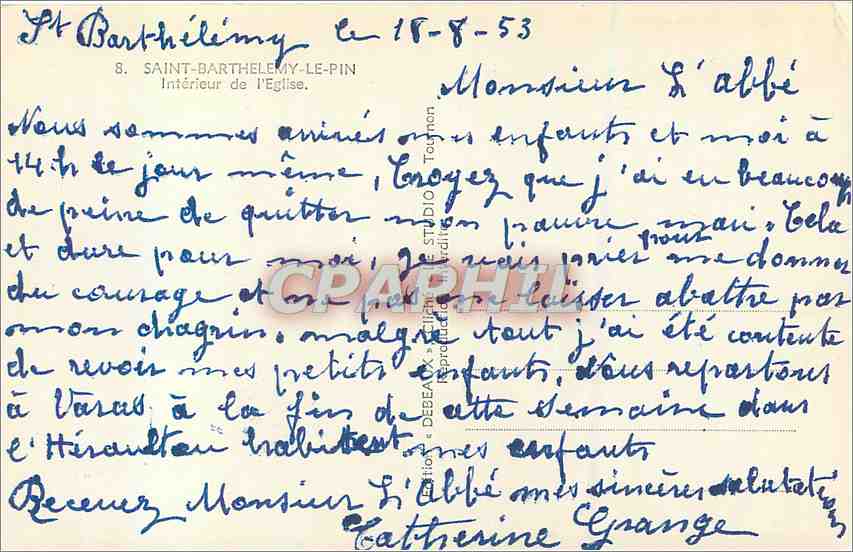 St Barthélémy le 18-8-53
8. SAINT-BARTHELEMY-LE-PIN
Intérieur de l'Eglise.
Monsieur L'abbé
Nous sommes arrivés mes enfants et moi à
14.h le jour même, Croyez que j'ai eu beaucoup
de peine de quitter mon pauvre mari. Cela
et dure pour moi, je vais prier pour me donner
du courage et ne pas me laisser abattre par
mon chagrin. malgré tout j'ai été contente
de revoir mes petits enfants, Nous repartons
à Varas à la fin de cette semaine dans
l'Hérault ou habitent mes enfants
Recevez Monsieur L'Abbé mes sincères salutations
Catherine Grange
Edition « DEBEAUX » Cliché STUDIO Tournon
Reproduction Interdite
CPARPHIL